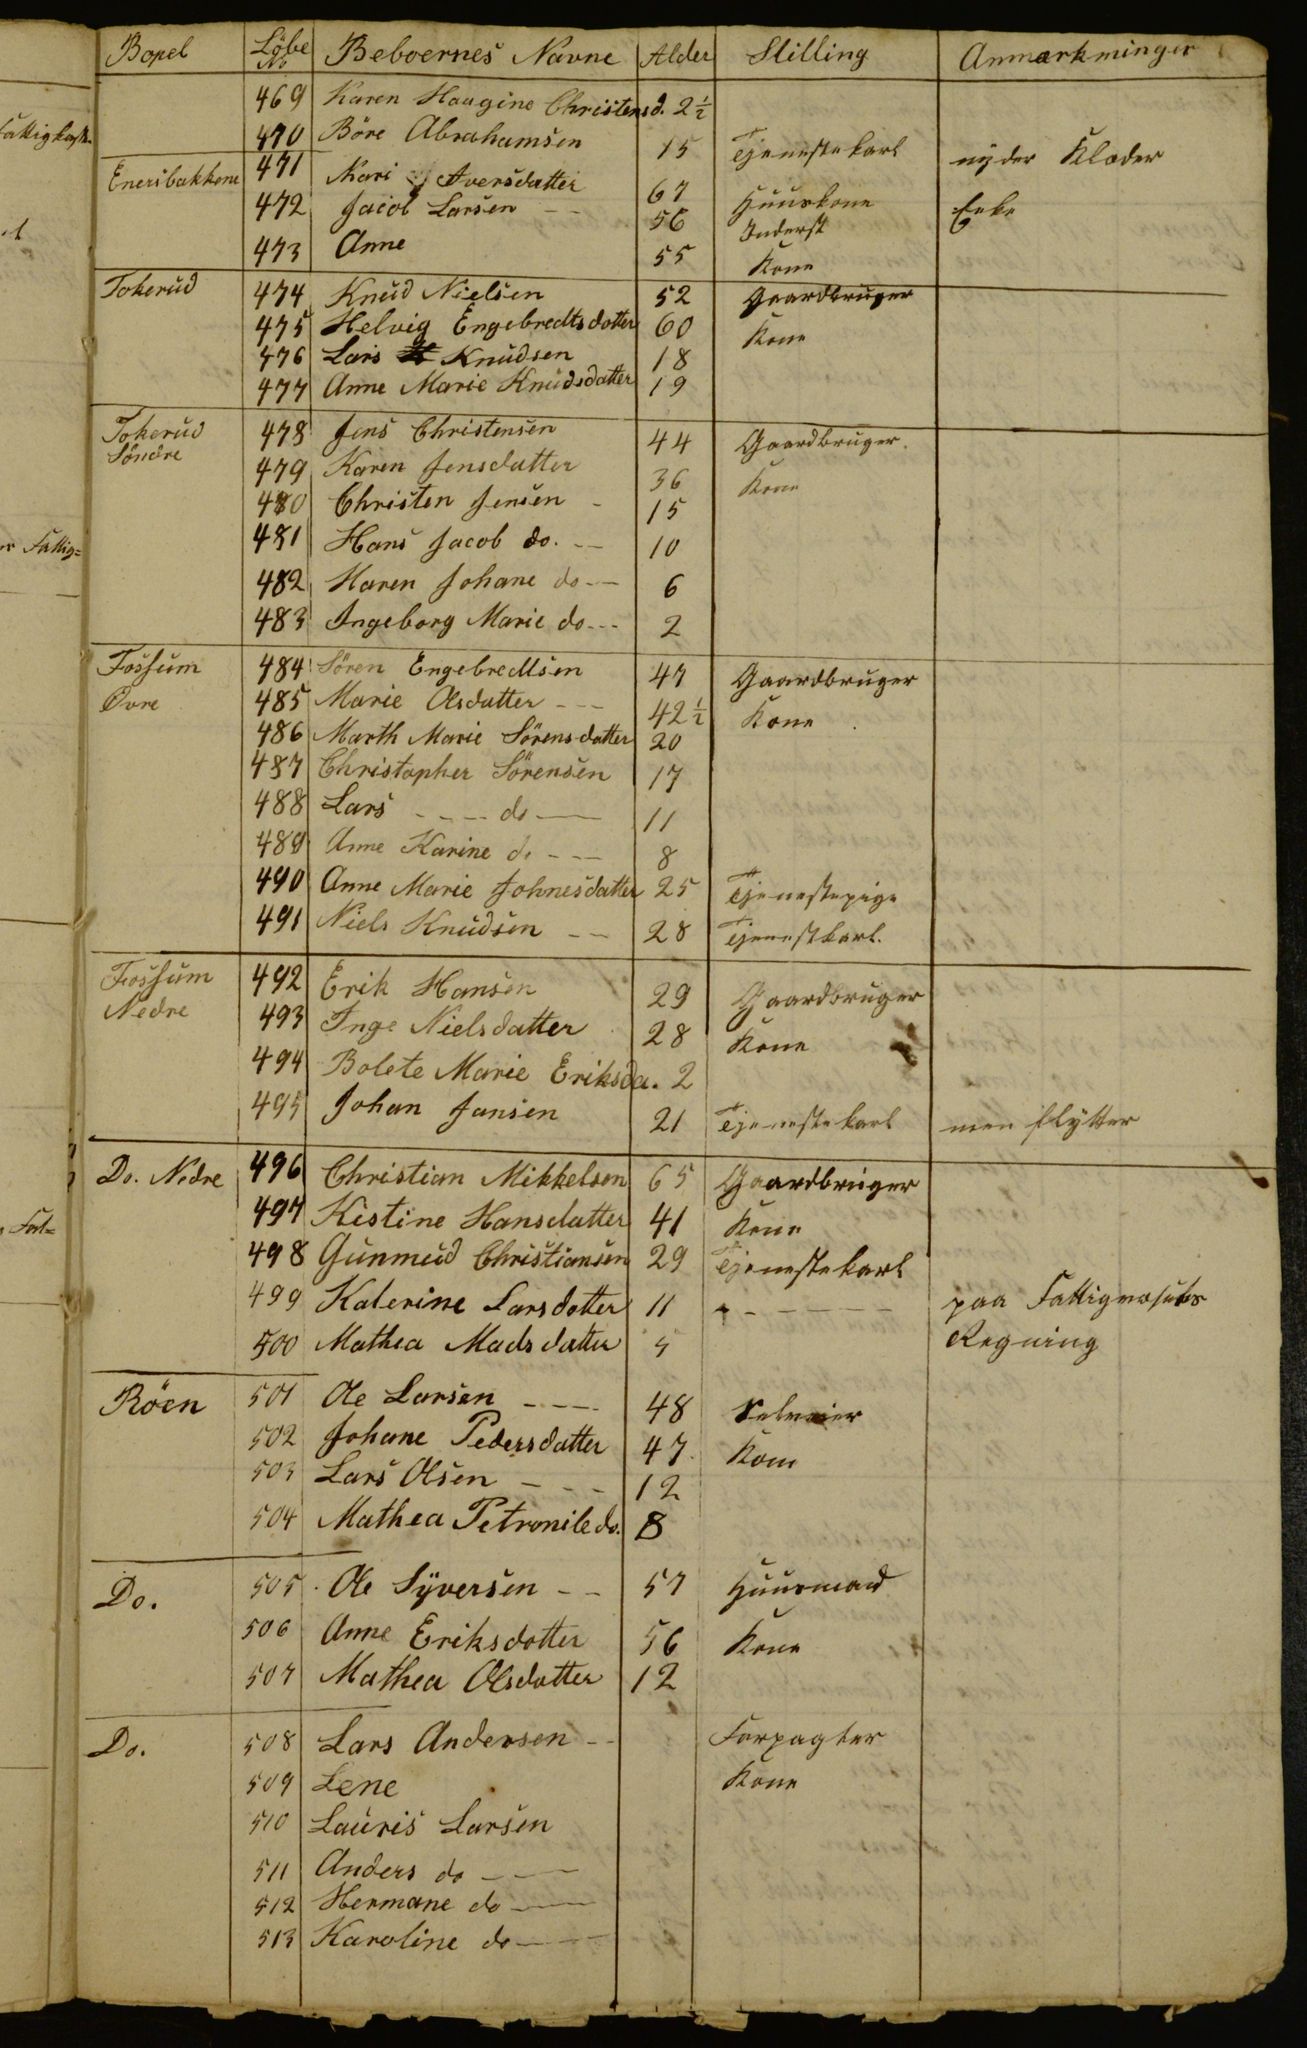 Bopel Løbe No Beboernes Navne Alder Stilling Anmærkninger
469 Karen Haagine Christensd. 2½
470 Böre Abrahamsen 15 Tjenestekarl nyder Klæder
Enersbakkene 471 Kari Iversdatter 67 Huuskone Enke
472 Jacob Larsen -- 56 Inderst
473 Anne 55 Kone
Tokerud 474 Knud Nielsen 52 Gaardbruger
475 Helvig Engebredtsdatter 60 Kone
476 Lars Knudsen 18
477 Anne Marie Knudsdatter 19
Tokerud 478 Jens Christensen 44 Gaardbruger.
Söndre 479 Karen Jensdatter 36 Kone
480 Christen Jensen - 15
481 Hans Jacob do. -- 10
482 Karen Johane do -- 6
483 Ingeborg Marie do --- 2
Fossum 484 Sören Engebredtsen 47 Gaardbruger
Övre 485 Marie Olsdatter --- 42½ Kone
486 Marth Marie Sörensdatter 20
487 Christopher Sörensen 17
488 Lars ---- do -- 11
489 Anne Karine do --- 8
490 Anne Marie Johnesdatter 25 Tjenestepige
491 Niels Knudsen -- 28 Tjenestkarl.
Fossum 492 Erik Hansen 29 Gaardbruger
Nedre 493 Inge Nielsdatter 28 Kone
494 Bolete Marie Eriksda. 2
495 Johan Jansen 21 Tjenestekarl men flytter
Do. Nedre 496 Christian Mikkelsen 65 Gaardbruger
497 Kistine Hansdatter 41 Kone
498 Gunmud Christiansen 29 Tjenestekarl
499 Katerine Larsdatter 11 ------ paa Fattigvæsnets
500 Mathea Madsdatter 5 Regning
Röen 501 Ole Larsen ---- 48 Selveier
502 Johane Pedersdatter 47 Kone
503 Lars Olsen --- 12
504 Mathea Petronile do. 8
Do. 505 Ole Syversen -- 57 Huusmand
506 Anne Eriksdatter 56 Kone
507 Mathea Olsdatter 12
Do. 508 Lars Andersen -- Forpagter
509 Lene Kone
510 Lauris Larsen
511 Anders do ---
512 Hermane do ---
513 Karoline do ---